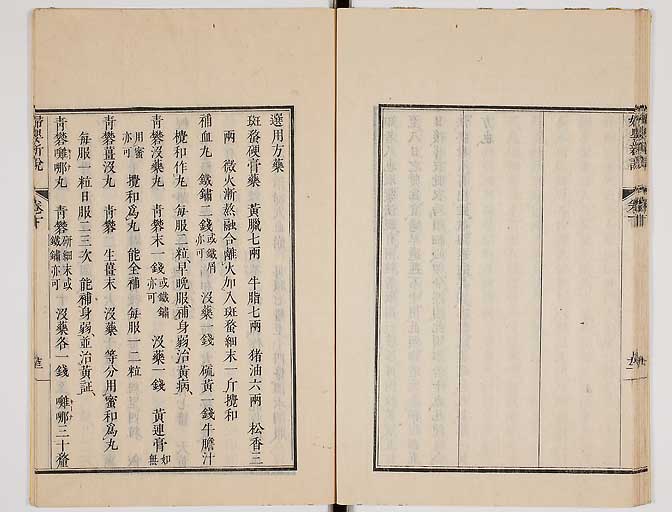 選用方藥
斑蝥硬膏藥 黃臘七兩 牛脂七兩 猪油六兩 松香三
兩 微火漸熬融合離火加入斑蝥細末一斤攪和
補血丸 鐵鏽二錢或鐵屑亦可 沒藥一錢 硫黃一錢牛膽汁
攪和作丸 每服二粒、早晚服補身弱、治黃病、
青礬沒藥丸 青礬末一錢或鐵鏽亦可 沒藥一錢 黃連膏如無
用蜜亦可 攪和爲丸 能全補 每服一二粒
青礬薑沒丸 青礬 生薑末 沒藥 等分用、蜜和爲丸
每服一粒日服二三次、能補身弱、並治黃証、
青礬囉哪丸 青礬研細末或鐵鏽亦可 沒藥各一錢 囉哪三十釐
婦嬰新說
卷下